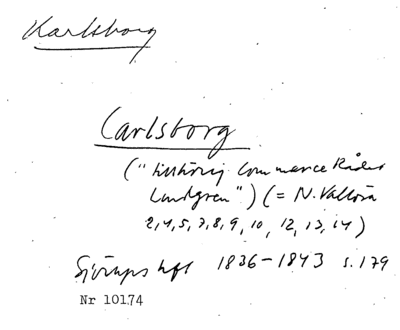 Karlsborg
Carlsborg
("tillhörig Commerce Rådet
Lundgren") (= N. Vallösa
2,4,5,7,8,9, 10, 12, 13, 14)
hft 1836-1843 s. 179
Nr 10174